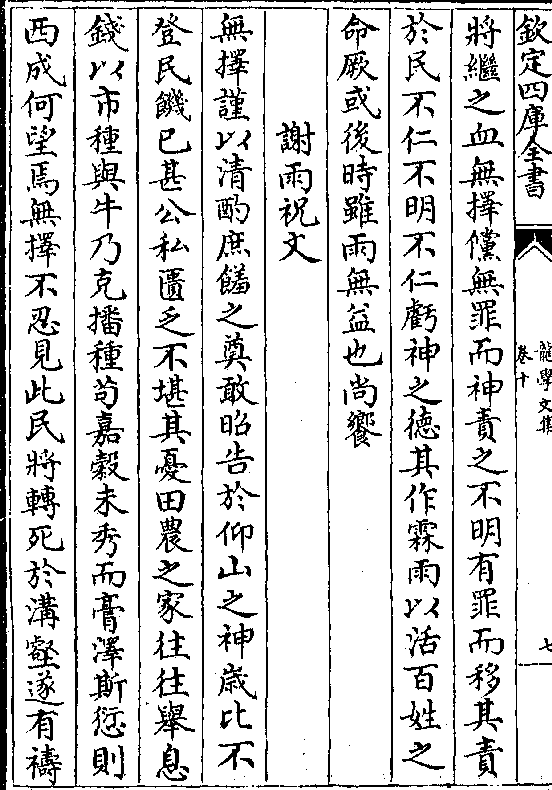 欽定四庫全書
龍學文集
卷十
七
將繼之血無擇儻無罪而神責之不明有罪而移其責
於民不仁不明不仁虧神之德其作霖雨以活百姓之
命厥或後時雖雨無益也尚饗
謝雨祝文
無擇謹以清酌庶饈之奠敢昭告於仰山之神歲比不
登民饑已甚公私匱乏不堪其憂田農之家往往舉息
錢以市種與牛乃克播種苟嘉穀未秀而膏澤斯愆則
西成何望焉無擇不忍見此民將轉死於溝壑遂有禱